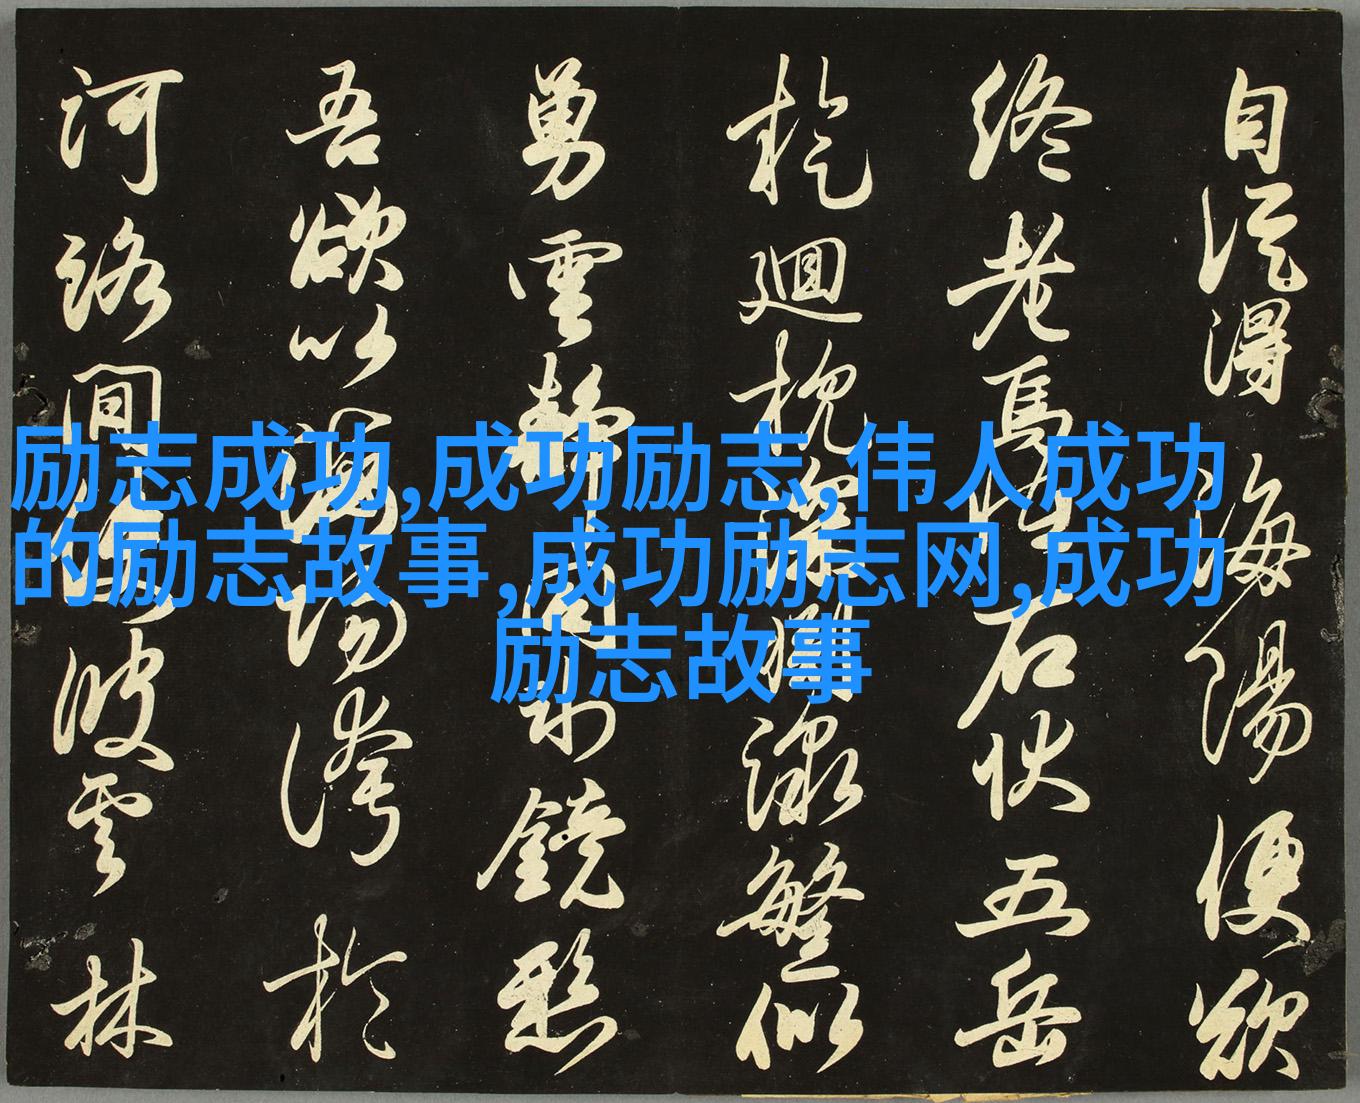 自從得海陽便欲
終老焉怪石伏五岳
迴枕深繁似
勇雲靜鏡愁
吾欲以誇於
河洛間波雲林
励志成功,成功励志,伟人成功
的励志故事,成功励志网,成功
励志故事